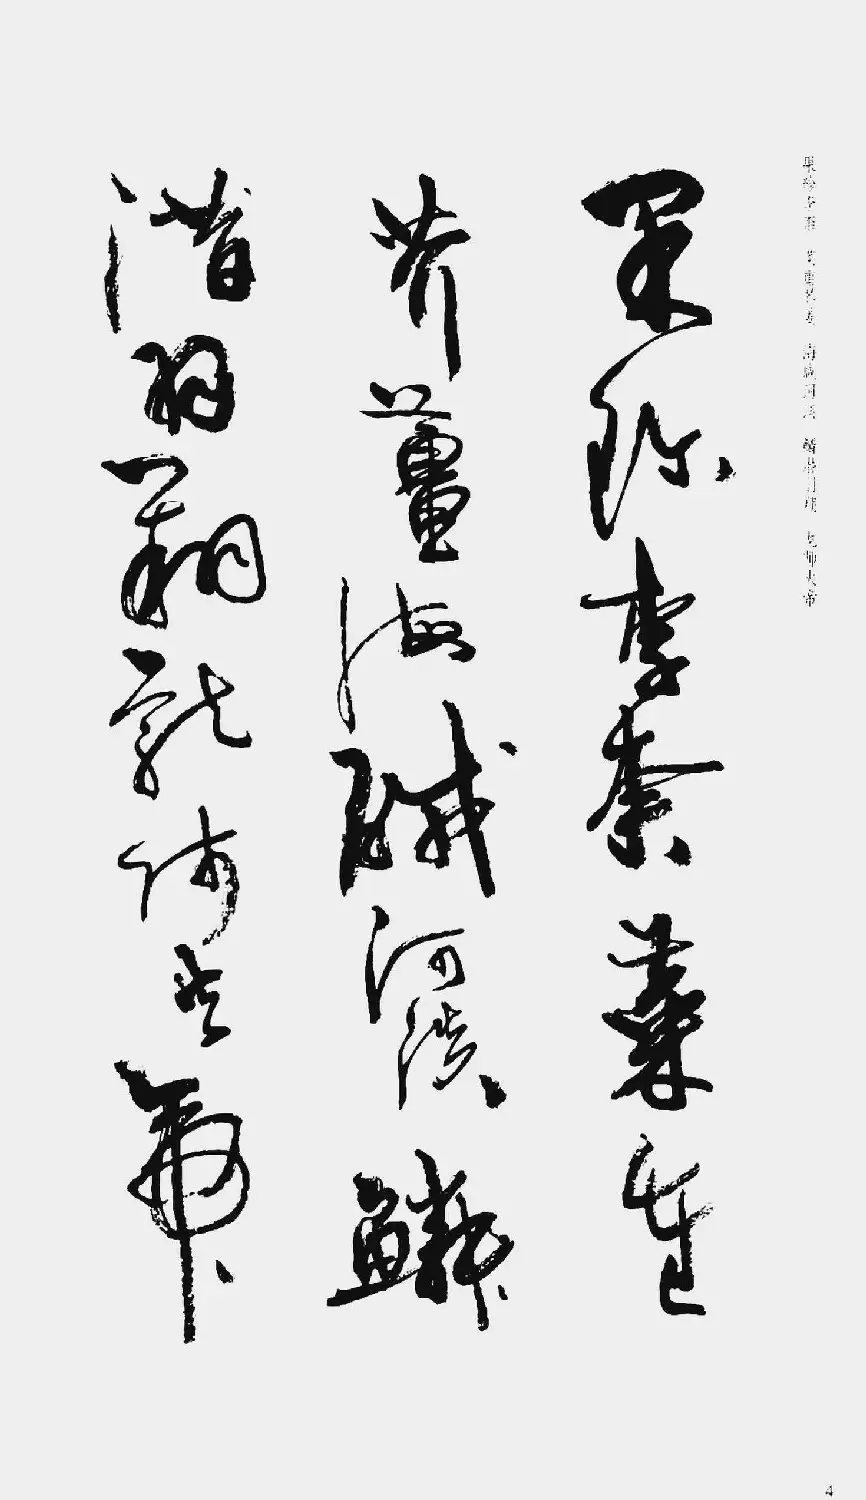 果珍李柰　菜重芥姜　海咸河淡　鳞潜羽翔　龙师火帝
果珍李柰菜重
芥薑海鹹河淡鱗
潛羽翔龍師火帝
4